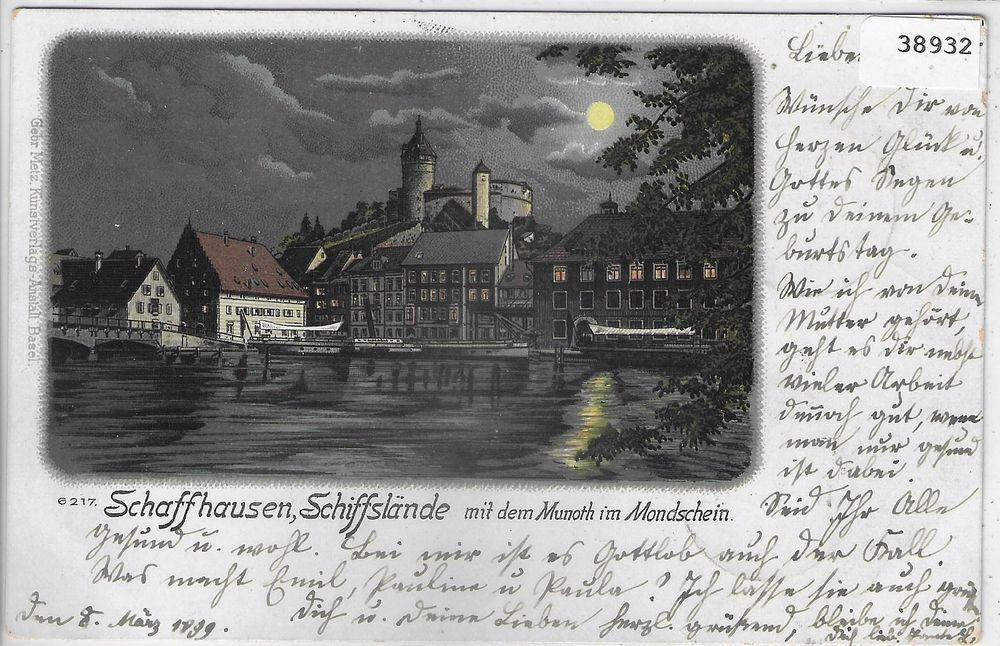 38932
Liebe
Wünsche Dir von
Herzen Glück u.
Gottes Segen
zu Deinem Ge-
burtstag.
Wie ich von Deiner
Mutter gehört,
geht es Dir nebst
vieler Arbeit
dennoch gut, wenn
man nur gesund
ist dabei.
Seid Ihr Alle
gesund u. wohl. Bei mir ist es Gottlob auch der Fall.
Was macht Emil, Pauline u Paula? Ich lasse sie auch
Dich u. Deine Lieben herzl. grüßend, bleibe ich Deine
Dich lieb. Tante L.
Den 8. März 1899.
6217. Schaffhausen, Schiffslände mit dem Munoth im Mondschein.
Gebr Metz, Kunstverlags-Anstalt, Basel.